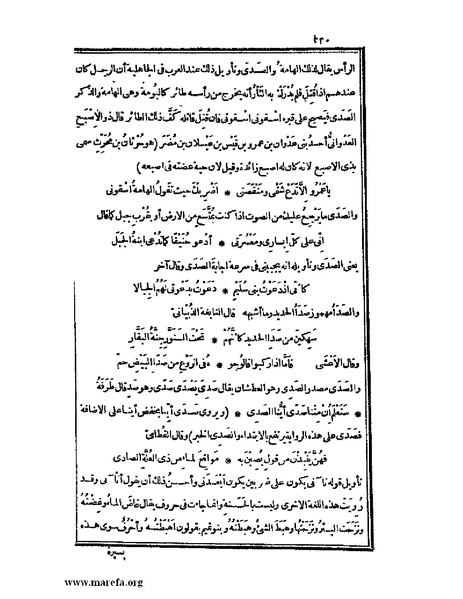 ٢٣٠
الرأس يقال لذلك الهامة والصدى وتأويل ذلك عند العرب في الجاهلية أن الرجل كان
عندهم اذا قتل فلم يدرك به الثأر أنه يخرج من رأسه طائر كالبومة وهي الهامة والذكر
الصدى فيصيح على قبره اسقوني اسقوني فان قتل قاتله كف ذلك الطائر قال ذو الاصبع
العدواني أحد بني عدوان بن عمرو بن قيس بن عيلان بن مضر (هو حرثان بن محرث سمي
بذي الاصبع لانه كان له اصبع زائدة وقيل لان حية عضته في اصبعه)
يا عمرو إلا تدع شتمي ومنقصتي * أضربك حيث تقول الهامة اسقوني
والصدى ما يرجع عليك من الصوت اذا كنت بمتسع من الارض أو بقرب جبل كما قال
إني على كل إيساري ومعسرتي * أدعو حنيفا كما تدعى ابنة الجبل
يعني الصدى وتأويله انه يجيبني في سرعة اجابة الصدى وقال آخر
كأني اذ دعوت بني سليم * دعوت بدعوتي لهم الجبالا
والصدأ مهموز صدأ الحديد وما أشبهه قال النابغة الذبياني
سهكين من صدإ الحديد كأنهم * تحت السنور جنة البقار
وقال الأعشى فأما اذا ركبوا فالوجو * ه في الروع من صدإ البيض حم
والصدى مصدر الصدي وهو العطشان يقال صدي يصدى صدى وهو صد قال طرفة
* ستعلم ان متنا صدى أينا الصدي * (ويروى صدى أينا بخفض أينا على الاضافة
فصدى على هذه الرواية يرتفع بالابتداء والصدي الخبر) وقال القطامي
فهن ينبذن من قول يصبن به * مواقع الماء من ذي الغلة الصادي
تأويل قوله نآني يكون على ضربين يكون أبعدني وأحسن ذلك أن يقول أنآني وقد
رويت هذه اللغة الاخرى وليست بالحسنة وانما جاءت في حروف يقال غاض الماء وغضته
ونزحت البئر ونزحتها وهبط الشئ وهبطته وبنو تميم يقولون أهبطته وأحرف سوى هذه
يسيرة
www.marefa.org